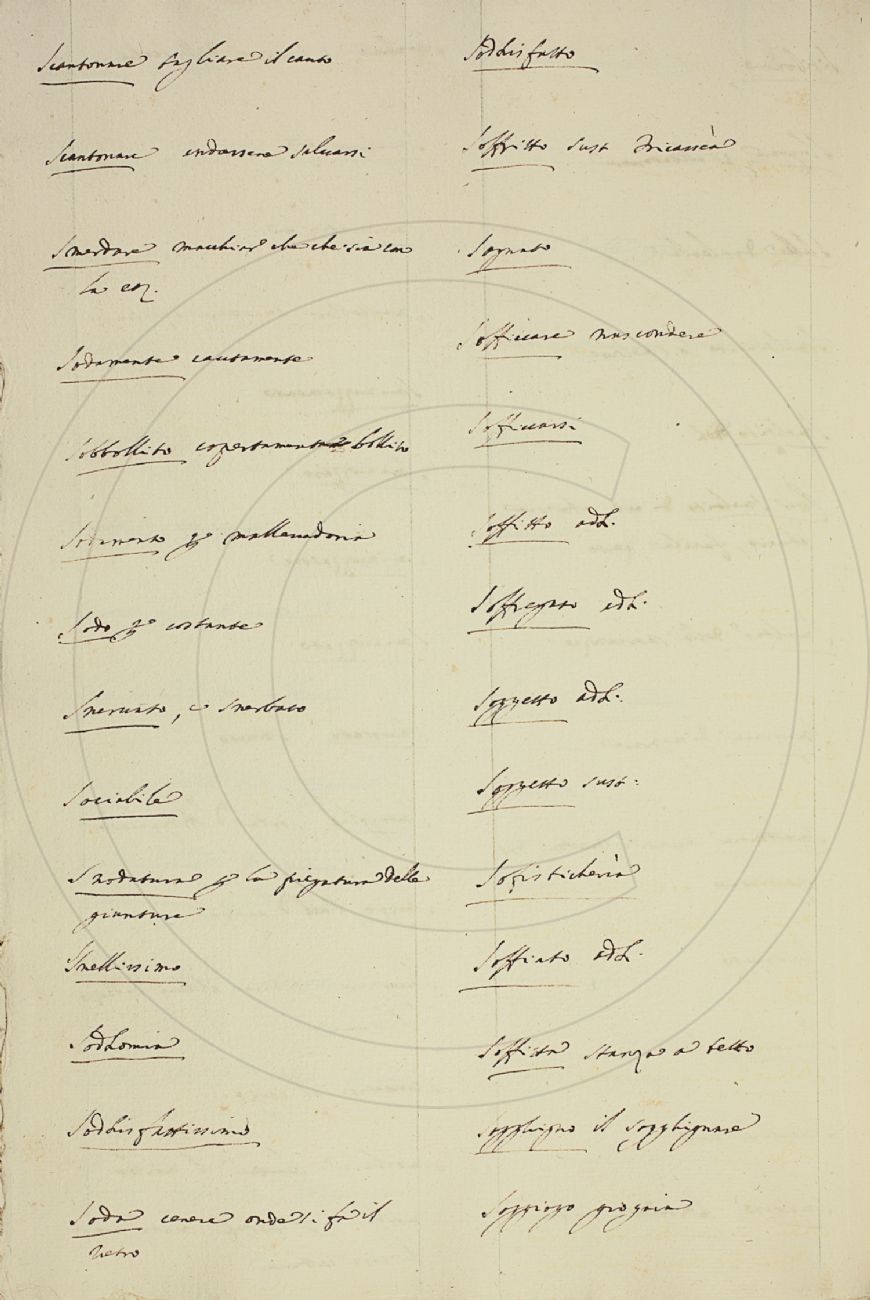 Scantonare tagliare il canto
Scantonare andarsene salvarsi
Smerdare macchiare che che sia con
la
Sodamente cautamente
Sobbollito copertamente bollito
Sodamento mallevadoria
Sodo costante
Snervato, e snerbato
Sociabile
Snodatura la piegatura delle
giunture
Snellissimo
Soddomia
Soddisfattissimo
Soda cenere onde si fa il
vetro
Soddisfatto
Soffritto sust fricassèa
Sognato
Sofficcare nascondere
Sofficcarsi
Soffitto add.
Soffregato add.
Soggetto add.
Soggetto sust.
Sofisticherìa
Soffiato add.
Soffitta stanza a tetto
Sogghigno il sogghignare
Soggiogo giogaia